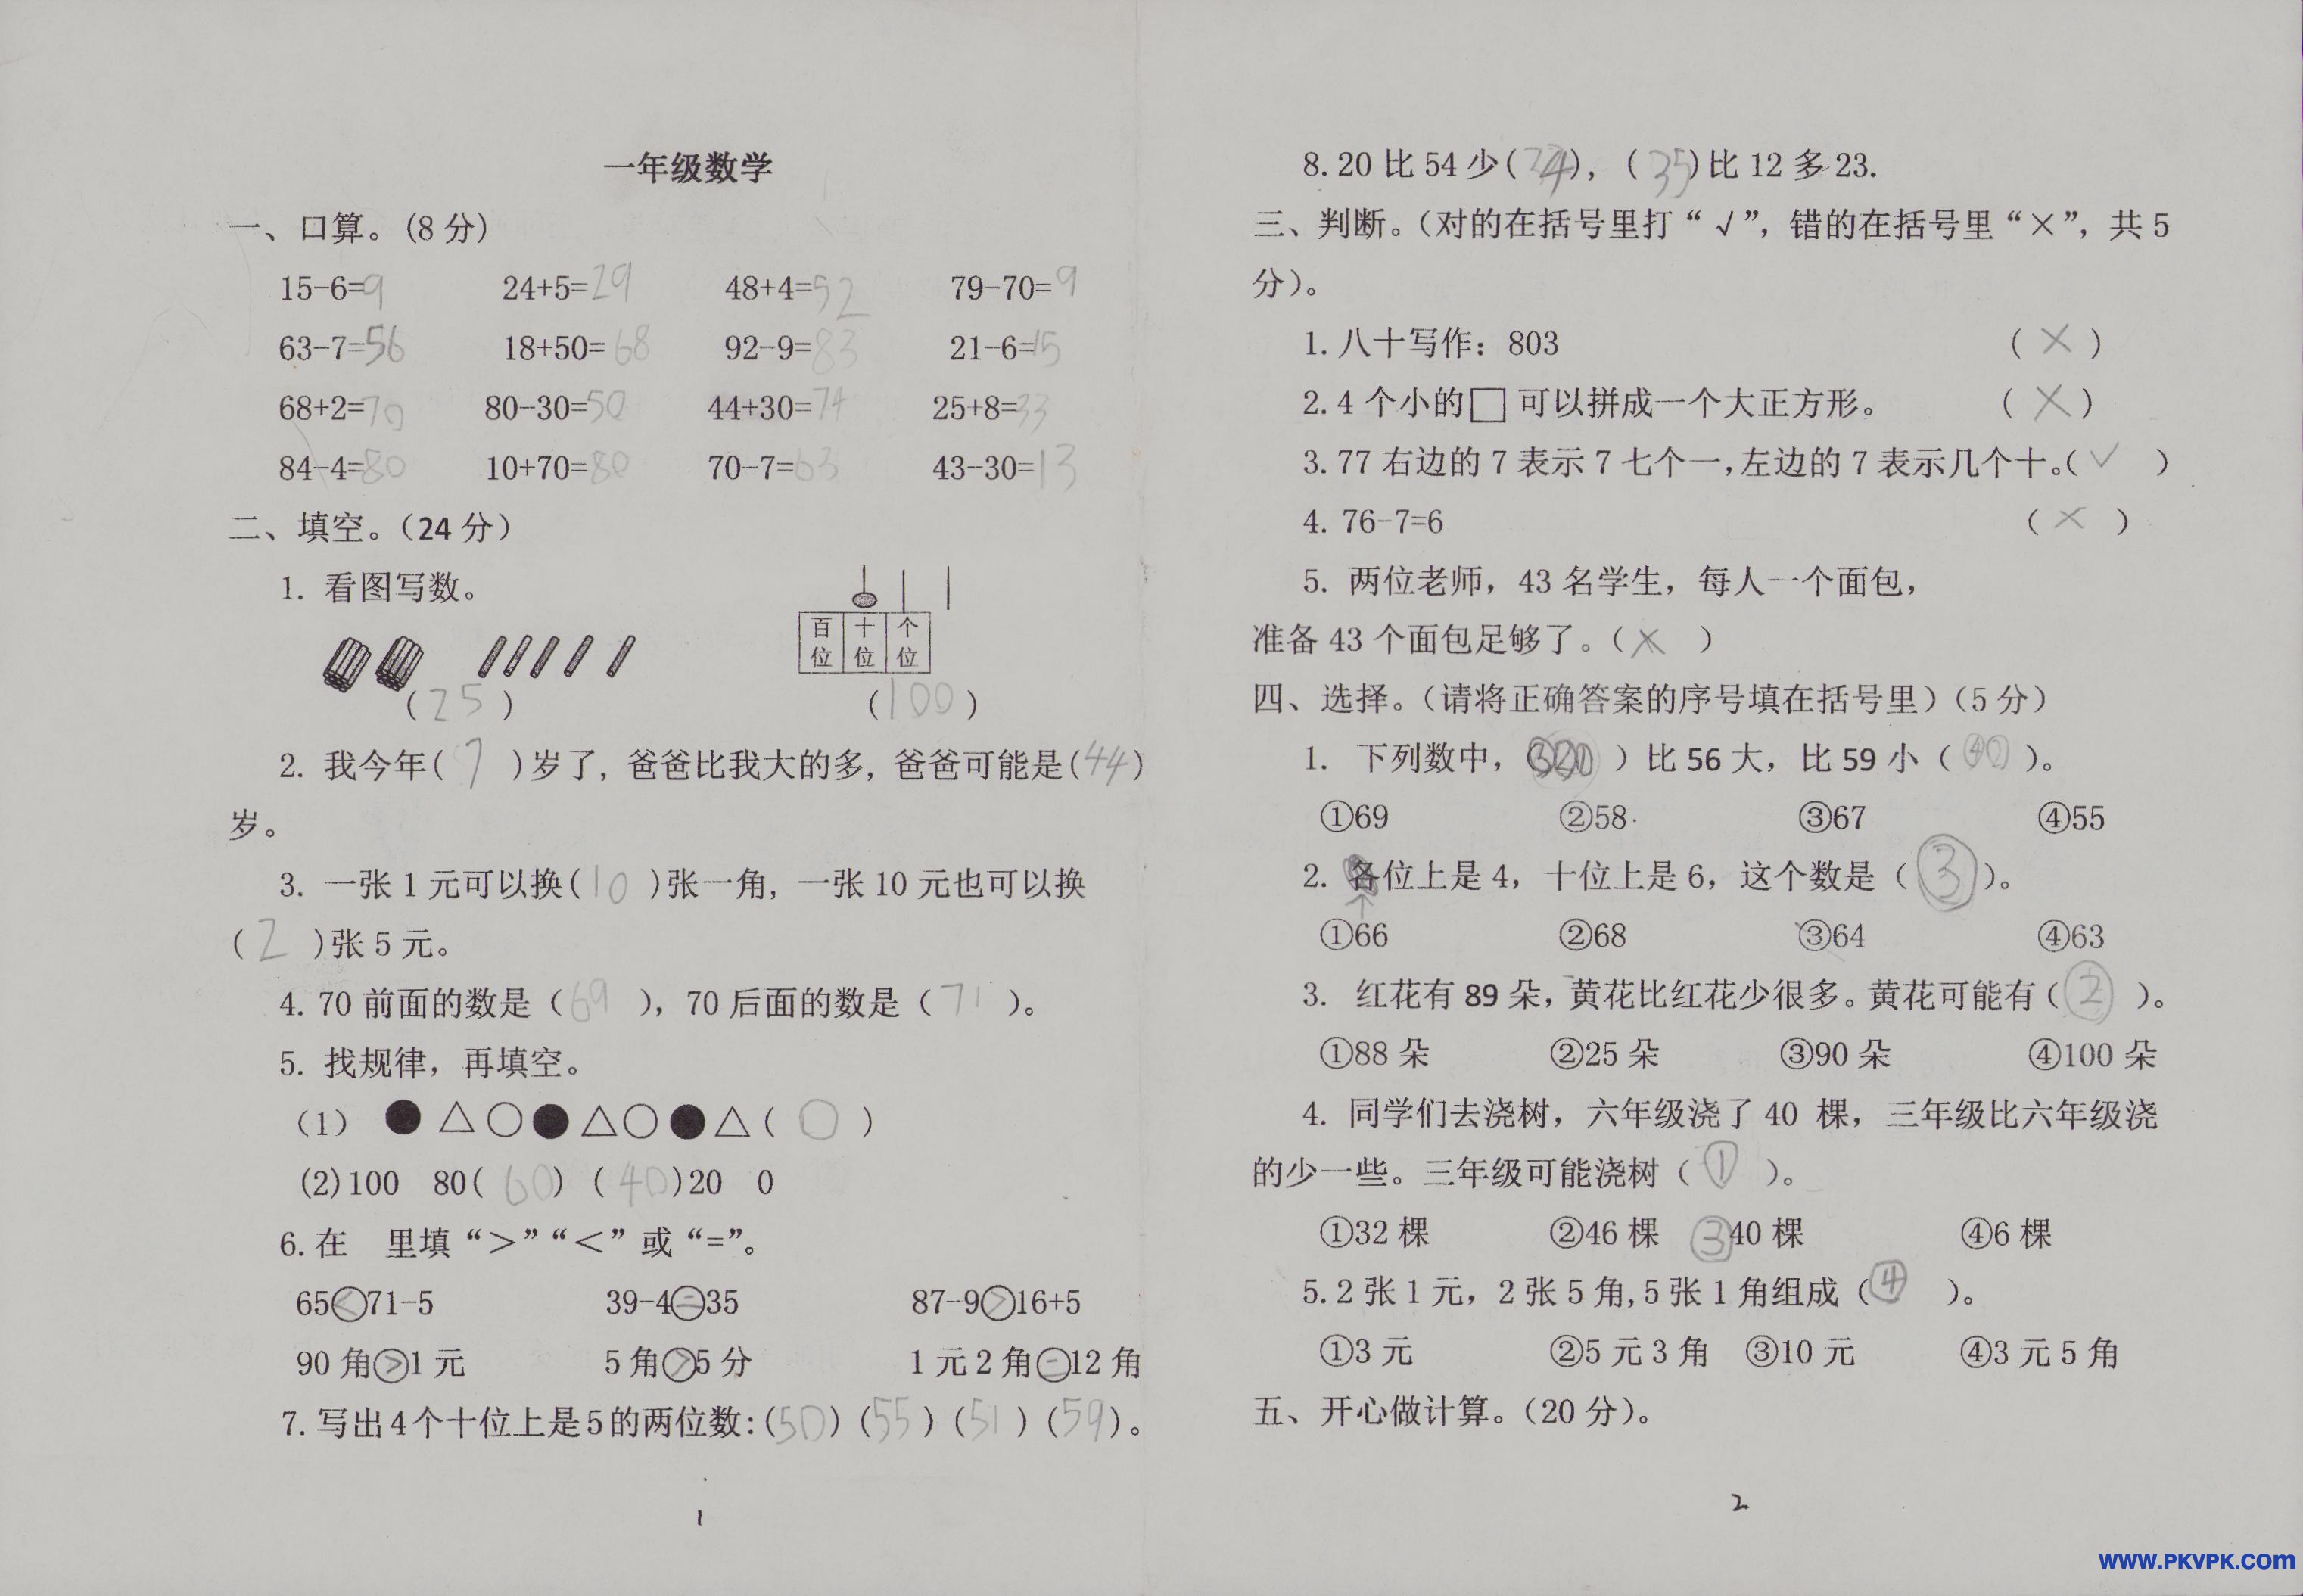 一年级数学
一、口算。(8分)
15-6=9 24+5=29 48+4=52 79-70=9
63-7=56 18+50=68 92-9=83 21-6=15
68+2=70 80-30=50 44+30=74 25+8=33
84-4=80 10+70=80 70-7=63 43-30=13
二、填空。(24分)
1. 看图写数。
百位 十位 个位
(25) (100)
2. 我今年(7)岁了, 爸爸比我大的多, 爸爸可能是(44)
岁。
3. 一张1元可以换(10)张一角, 一张10元也可以换
(2)张5元。
4. 70前面的数是(69), 70后面的数是(71)。
5. 找规律, 再填空。
(1) ●△○●△○●△(○)
(2)100 80(60) (40)20 0
6.在 里填“>”“<”或“=”。
65<71-5 39-4=35 87-9>16+5
90角>1元 5角>5分 1元2角=12角
7.写出4个十位上是5的两位数:(50)(55)(51)(59)。
1
8.20比54少(34), (35)比12多23.
三、判断。(对的在括号里打“√”, 错的在括号里“×”, 共5
分)。
1.八十写作: 803 (×)
2.4个小的□可以拼成一个大正方形。 (×)
3.77右边的7表示7七个一,左边的7表示几个十。(√)
4. 76-7=6 (×)
5. 两位老师, 43名学生, 每人一个面包,
准备43个面包足够了。(×)
四、选择。(请将正确答案的序号填在括号里)(5分)
1. 下列数中, ( )比56大, 比59小( )。
①69 ②58 ③67 ④55
2. 各位上是4, 十位上是6, 这个数是(③)。
①66 ②68 ③64 ④63
3. 红花有89朵, 黄花比红花少很多。黄花可能有(②)。
①88朵 ②25朵 ③90朵 ④100朵
4. 同学们去浇树, 六年级浇了40 棵, 三年级比六年级浇
的少一些。三年级可能浇树(①)。
①32棵 ②46棵 ③40棵 ④6棵
5.2张1元, 2张5角,5张1角组成(④)。
①3元 ②5元3角 ③10元 ④3元5角
五、开心做计算。(20分)。
2
WWW.PKVPK.COM